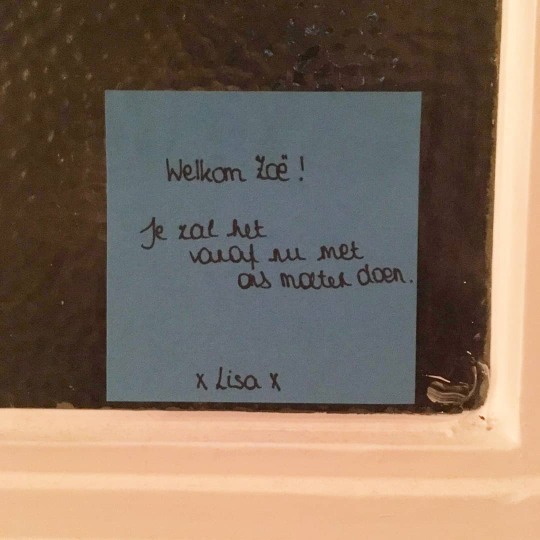 Welkom Zoë!
Je zal het
vanaf nu met
ons moeten doen.
x Lisa x